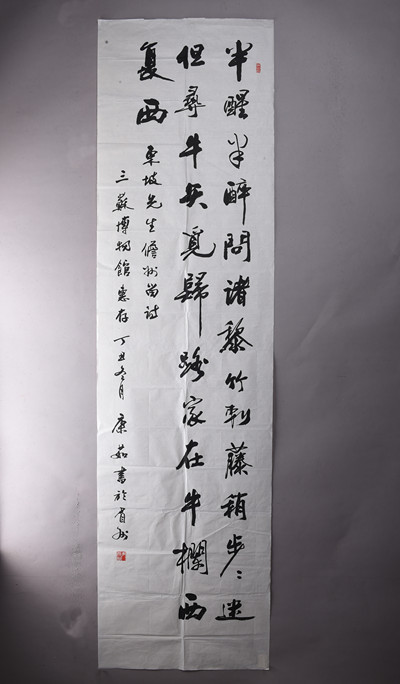 半醒半醉問諸黎竹刺藤稍步〻迷
但尋牛矢覓歸路家在牛欄西
复西
東坡先生儋州留诗
三蘇博物館惠存 丁丑冬月 康茹書於眉州